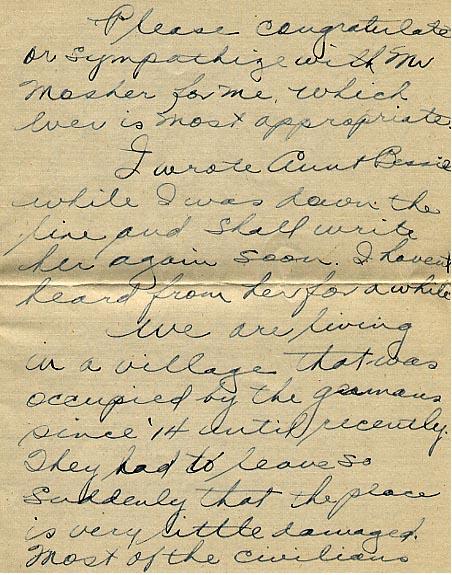 Please congratulate
or sympathize with Mr
Mosher for me, which
ever is most appropriate.
I wrote Aunt Bessie
while I was down the
line and shall write
her again soon. I haven't
heard from her for a while
We are living
in a village that was
occupied by the germans
since '14 until recently.
They had to leave so
suddenly that the place
is very little damaged.
Most of the civilians